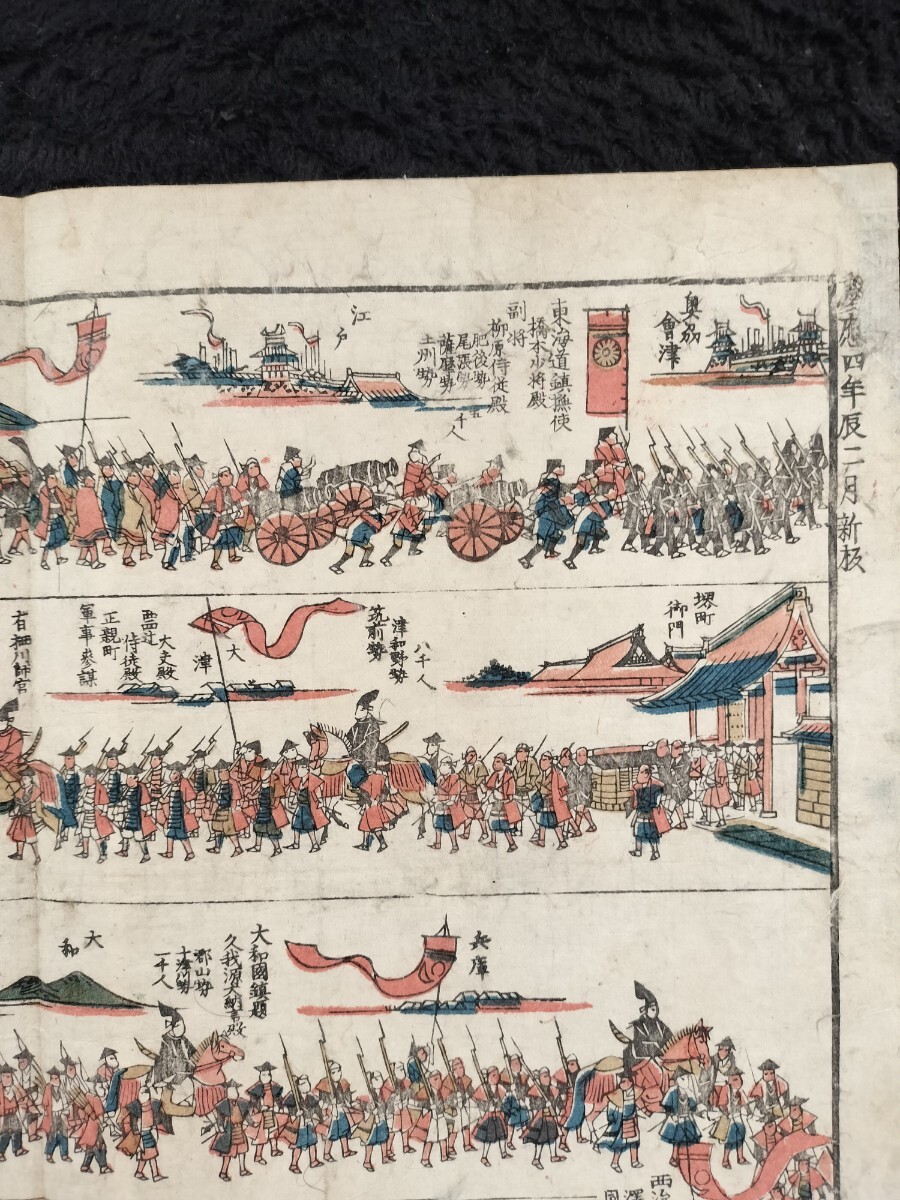 慶應四年辰二月新板
奥刕
會津
東海道鎮撫使
橋本少將殿
副将
柳原侍従殿
肥後勢
尾張勢
薩摩勢
土州勢
五千人
江戸
堺町
御門
八千人
津和野勢
筑前勢
大津
大夫殿
西四辻
侍従殿
正親町
軍事参謀
有栖川帥宮
兵庫
大和國鎮
久我源大納言殿
郡山勢
十津川勢
一千人
大和